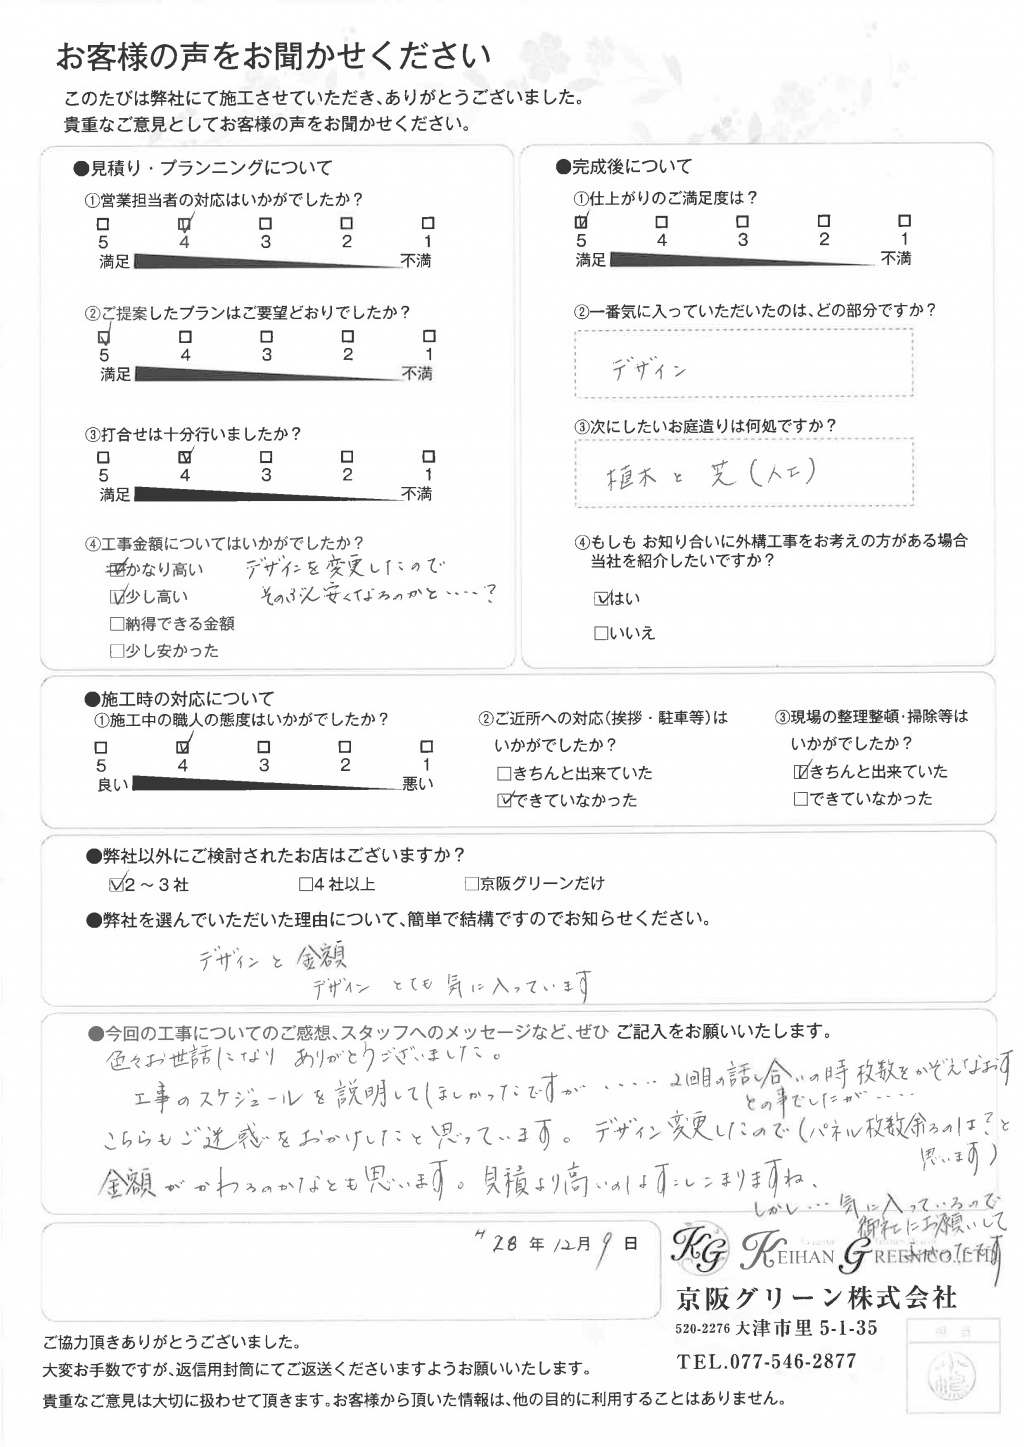 お客様の声をお聞かせください
このたびは弊社にて施工させていただき、ありがとうございました。
貴重なご意見としてお客様の声をお聞かせください。
●見積り・プランニングについて
①営業担当者の対応はいかがでしたか?
□ ☑ □ □ □
5 4 3 2 1
満足 不満
②ご提案したプランはご要望どおりでしたか?
☑ □ □ □ □
5 4 3 2 1
満足 不満
③打合せは十分行いましたか?
□ ☑ □ □ □
5 4 3 2 1
満足 不満
④工事金額についてはいかがでしたか?
かなり高い デザインを変更したので
☑少し高い そのぶん安くなるのかと・・・・?
□納得できる金額
□少し安かった
●完成後について
①仕上がりのご満足度は?
☑ □ □ □ □
5 4 3 2 1
満足 不満
②一番気に入っていただいたのは、どの部分ですか?
デザイン
③次にしたいお庭造りは何処ですか?
植木と芝(人工)
④もしも お知り合いに外構工事をお考えの方がある場合
当社を紹介したいですか?
☑はい
□いいえ
●施工時の対応について
①施工中の職人の態度はいかがでしたか?
□ ☑ □ □ □
5 4 3 2 1
良い 悪い
②ご近所への対応(挨拶・駐車等)は
いかがでしたか?
□きちんと出来ていた
☑できていなかった
③現場の整理整頓・掃除等は
いかがでしたか?
☑きちんと出来ていた
□できていなかった
●弊社以外にご検討されたお店はございますか?
☑2～3社 □4社以上 □京阪グリーンだけ
●弊社を選んでいただいた理由について、簡単で結構ですのでお知らせください。
デザインと金額
デザイン とても気に入っています
●今回の工事についてのご感想、スタッフへのメッセージなど、ぜひ ご記入をお願いいたします。
色々お世話になり ありがとうございました。
工事のスケジュールを説明してほしかったですが・・・・・ 2回目の話し合いの時枚数をかぞえなおす
との事でしたが・・・・
こちらもご迷惑をおかけしたと思っています。デザイン変更したので(パネル枚数余るのは?と
思います)
金額がかわるのかなとも思います。見積より高いのはすこしこまりますね、
しかし・・・気に入っているので
御社にお願いして
よかったです
28年12月9日
KG KEIHAN GREEN CO.,LTD
京阪グリーン株式会社
520-2276 大津市里5-1-35
TEL.077-546-2877
ご協力頂きありがとうございました。
大変お手数ですが、返信用封筒にてご返送くださいますようお願いいたします。
貴重なご意見は大切に扱わせて頂きます。お客様から頂いた情報は、他の目的に利用することはありません。